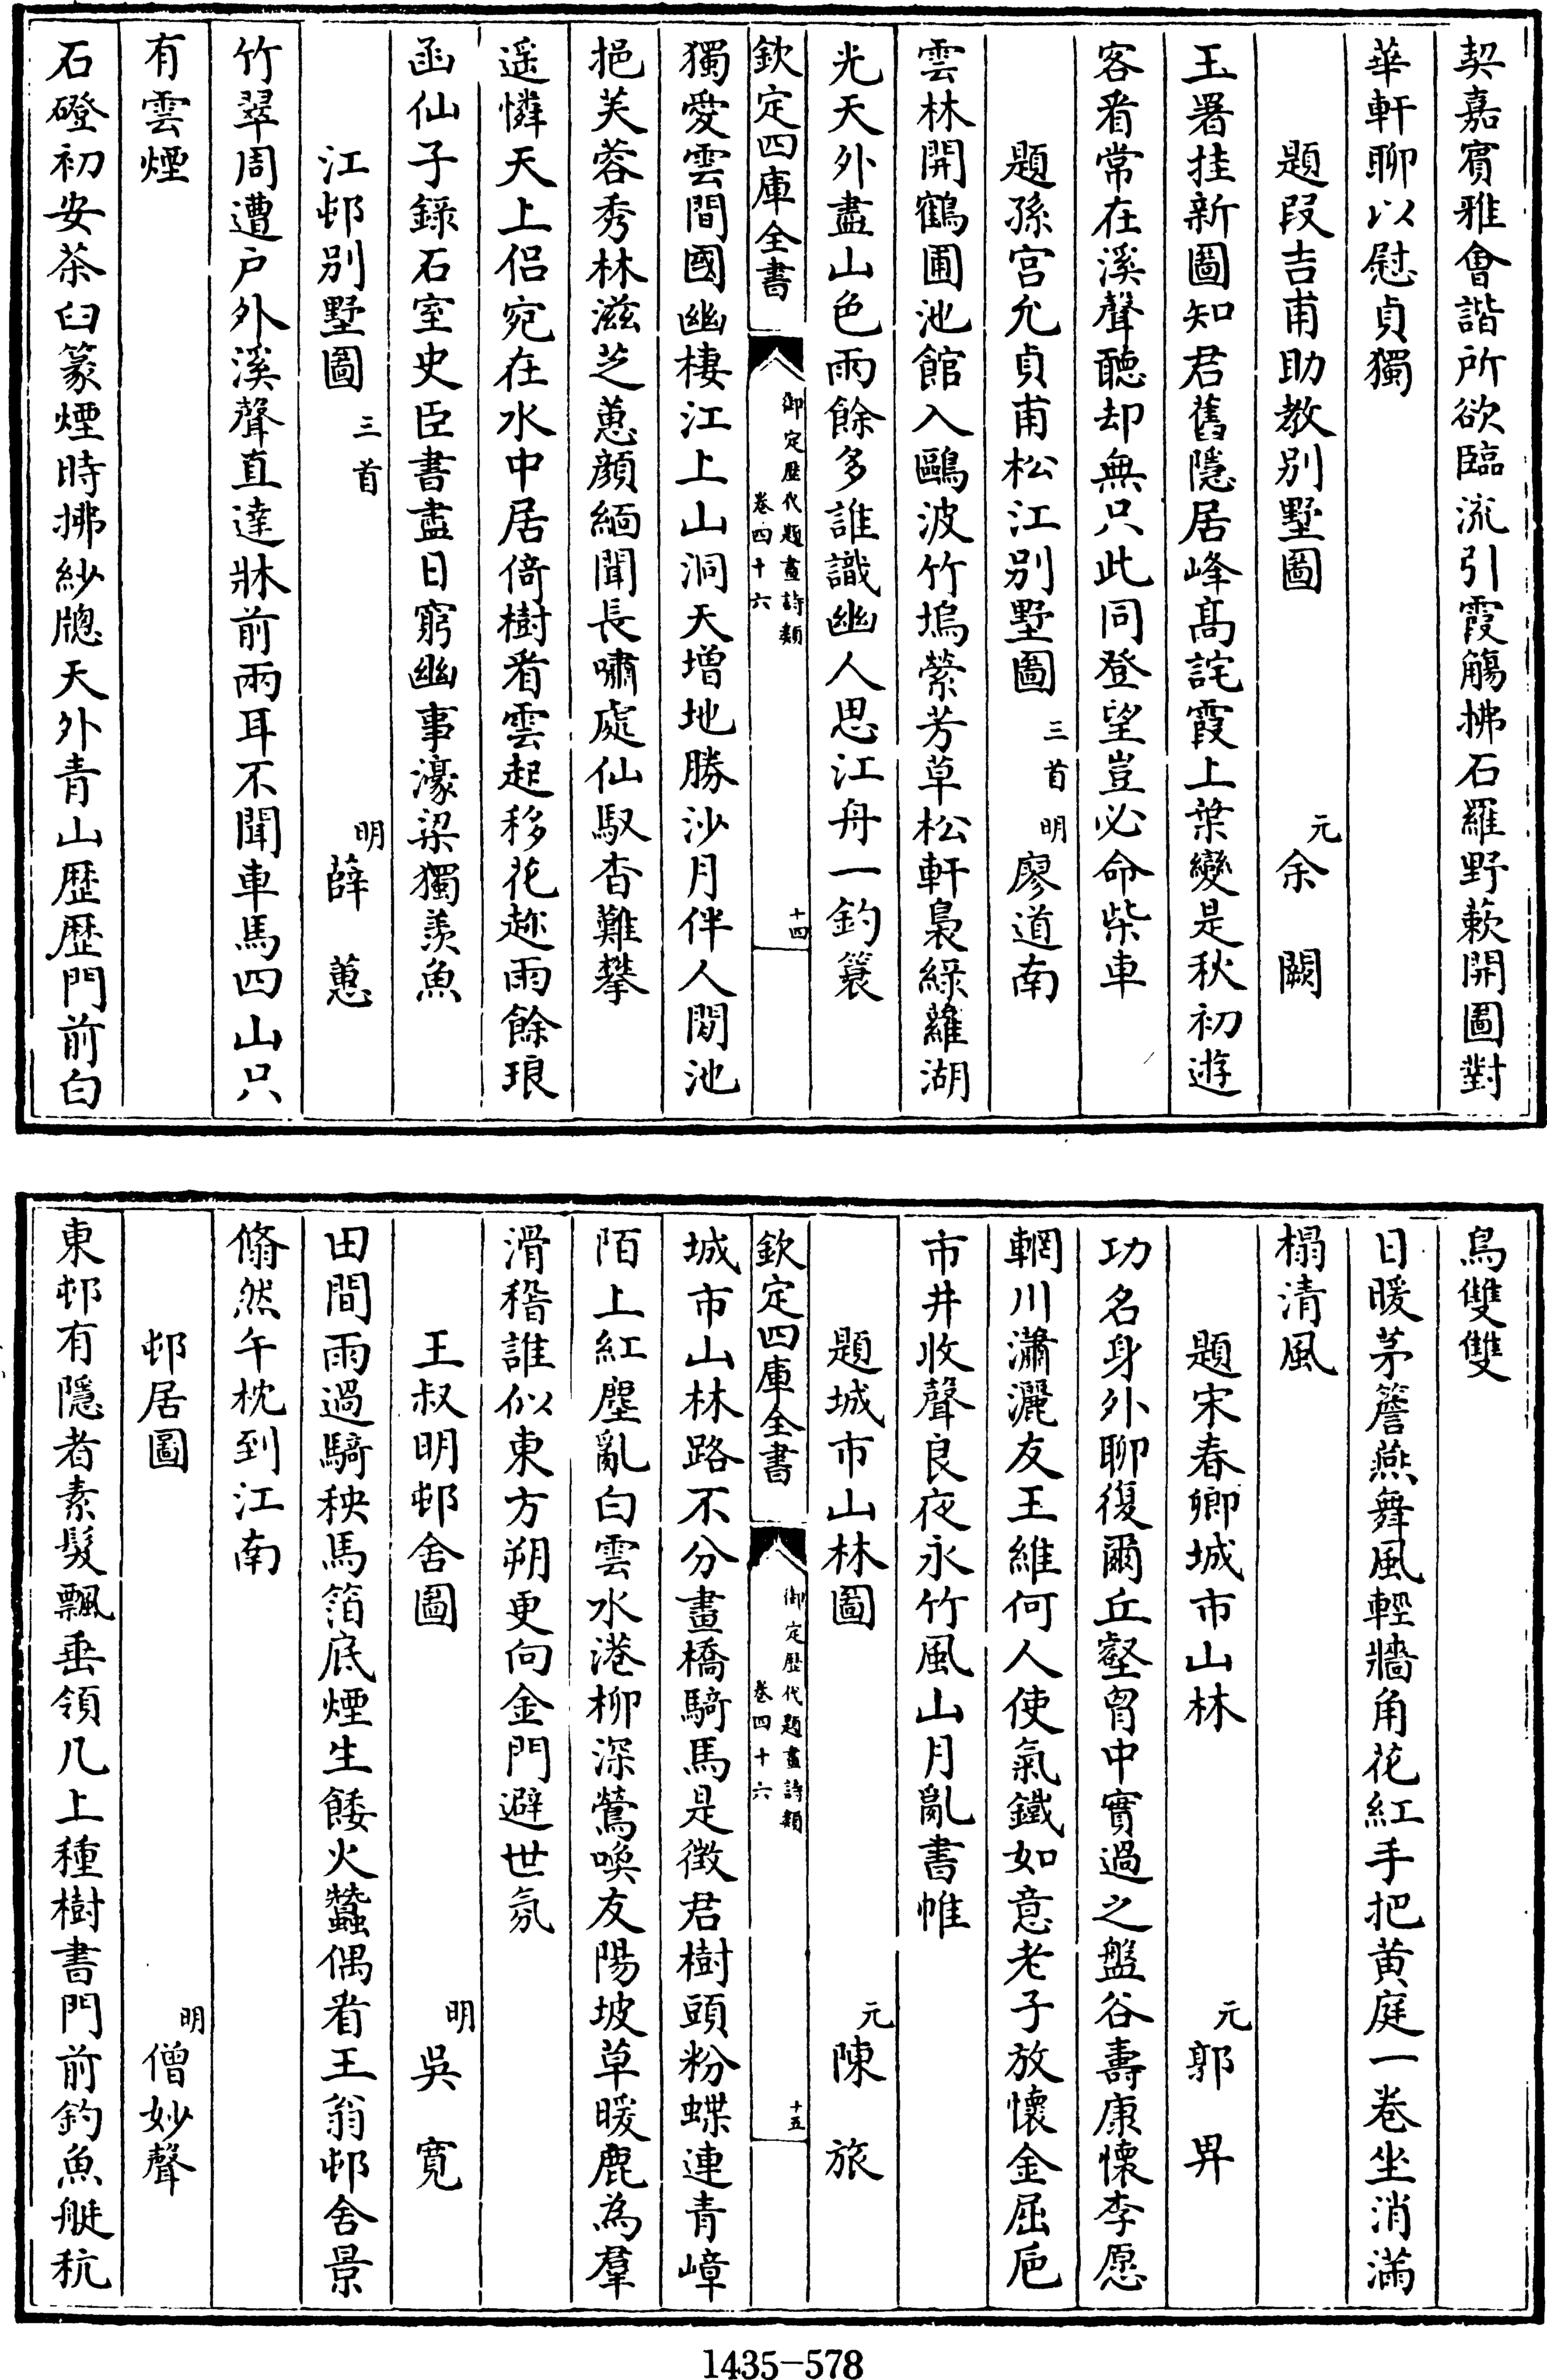 契嘉賓雅會諧所欲臨流引霞觴拂石羅野蔌開圖對
華軒聊以慰貞獨
題段吉甫助教别墅圖
元余闕
玉署挂新圖知君舊隱居峰髙詫霞上葉變是秋初遊
客看常在溪聲聽却無只此同登望豈必命柴車
題孫宫允貞甫松江别墅圖三首
明廖道南
雲林開鶴圃池館入鷗波竹塢縈芳草松軒裊緑蘿湖
光天外盡山色雨餘多誰識幽人思江舟一釣蓑
欽定四庫全書
御定歴代題畫詩類
卷四十六
十四
獨愛雲間國幽棲江上山洞天增地勝沙月伴人閒池
挹芙蓉秀林滋芝蕙顔緬聞長嘯處仙馭杳難攀
遥憐天上侣宛在水中居倚樹看雲起移花趂雨餘琅
函仙子錄石室史臣書盡日窮幽事濠梁獨羨魚
江邨别墅圖三首
明薛蕙
竹翠周遭户外溪聲直達牀前兩耳不聞車馬四山只
有雲煙
石磴初安茶臼篆煙時拂紗牎天外青山歴歴門前白
鳥雙雙
日暖茅簷燕舞風輕牆角花紅手把黄庭一卷坐消滿
榻清風
題宋春卿城市山林
元郭昇
功名身外聊復爾丘壑胷中實過之盤谷壽康懷李愿
輞川瀟灑友王維何人使氣鐵如意老子放懷金屈巵
市井收聲良夜永竹風山月亂書帷
題城市山林圖
元陳旅
欽定四庫全書
御定歴代題畫詩類
卷四十六
十五
城市山林路不分畫橋騎馬是徴君樹頭粉蝶連青嶂
陌上紅塵亂白雲水港柳深鶯喚友陽坡草暖鹿為羣
滑稽誰似東方朔更向金門避世氛
王叔明邨舍圖
明吳寛
田間雨過騎秧馬箔底煙生餧火蠶偶看王翁邨舍景
翛然午枕到江南
邨居圖
明僧妙聲
東邨有隱者素髮飄垂領几上種樹書門前釣魚艇秔
1435-578